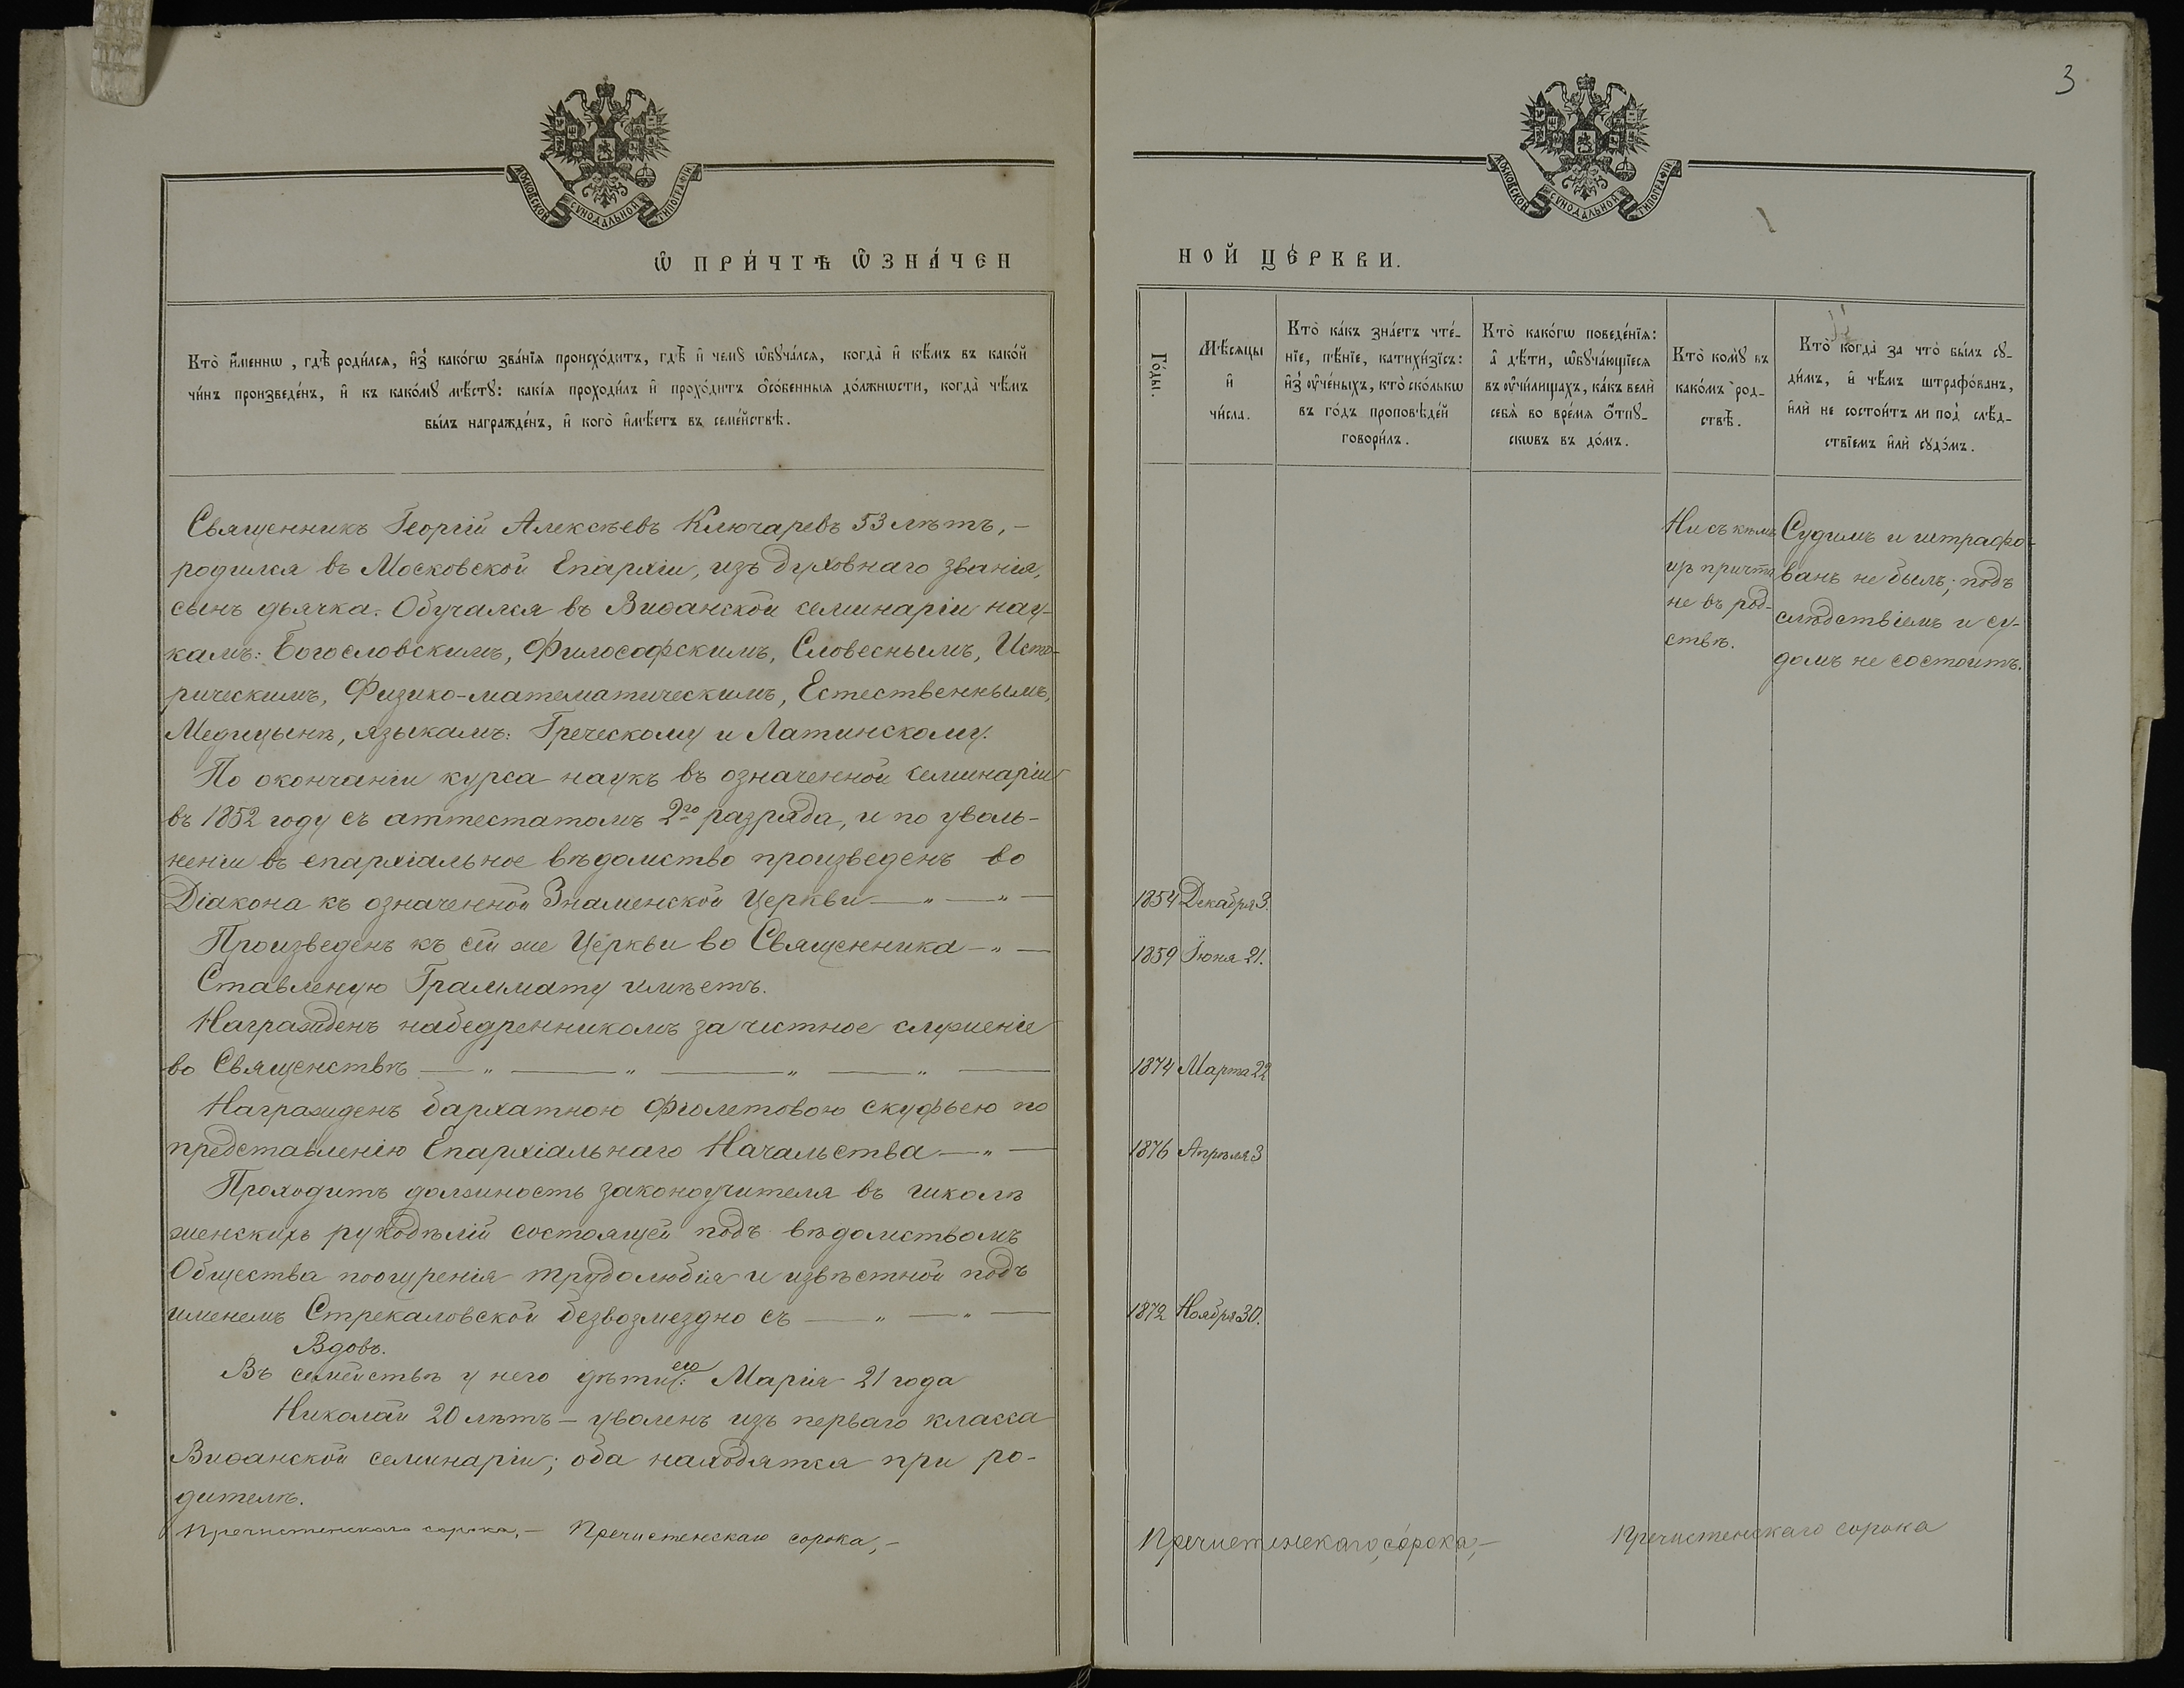 3
МОСКОВСКОЙ СУНОДАЛЬНОЙ ТИПОГРАФІИ
МОСКОВСКОЙ СУНОДАЛЬНОЙ ТИПОГРАФІИ
Ѡ ПРИ́ЧТѢ Ѡ҆ЗНА́ЧЕН
НОЙ ЦЕ́РКВИ.
Кто̀ и҆́меннѡ, гдѣ̀ роди́лся, и҆з̾ како́гѡ зва́нїя происхо́дитъ, гдѣ̀ и҆ чемꙋ̀ ѡ҆бꙋча́лся, когда̀ и҆ кѣ́мъ въ како́й
чи́нъ произведе́нъ, и҆ къ како́мꙋ мѣ́стꙋ: какі́я проходи́лъ и҆ прохо́дитъ ѻ҆со́бенныя до́лжнѡсти, когда̀ чѣ́мъ
бы́лъ награжде́нъ, и҆ кого̀ и҆мѣ́етъ въ семе́йствѣ.
Го́ды.
Мѣ́сяцы
и҆
чи́сла.
Кто̀ ка́къ зна́етъ чте́-
нїе, пѣ́нїе, катихи́зїсъ:
и҆з̾ ᲂу҆че́ныхъ, кто̀ ско́лькѡ
въ го́дъ проповѣ́дей
говори́лъ.
Кто̀ како́гѡ поведе́нїя:
а҆ дѣ́ти, ѡ҆бꙋча́ющїеся
въ ᲂу҆чи́лищахъ, ка́къ велѝ
себя̀ во вре́мя ѿпꙋ-
скѡвъ въ до́мъ.
Кто̀ комꙋ̀ въ
како́мъ род-
ствѣ̀.
Кто̀ когда̀ за что̀ бы́лъ сꙋ-
ди́мъ, и҆ чѣ́мъ штрафо́ванъ,
и҆лѝ не состои́тъ ли под̾ слѣ́д-
ствїемъ и҆лѝ сꙋдо́мъ.
Священникъ Георгій Алексѣевъ Ключаревъ 53 лѣтъ,-
родился въ Московской Епархіи, изъ духовнаго званія,
сынъ дьячка. Обучался въ Виѳанской семинаріи нау-
камъ: Богословскимъ, Философскимъ, Словеснымъ, Исто-
рическимъ, Физико-математическимъ, Естественнымъ,
Медицынѣ, языкамъ: Греческому и Латинскому.
По окончаніи курса наукъ въ означенной семинаріи
въ 1852 году съ аттестатомъ 2го разряда, и по уволь-
неніи въ епархіальное вѣдомство произведенъ во
Діакона къ означенной Знаменской Церкви — „ — „ —
1854 Декабря 3.
Произведенъ къ сей же Церкви во Священника — „ —
1859 Іюня 21.
Ставленую Граммату имѣетъ.
Награжденъ набедренникомъ за честное служеніе
во Священствѣ — „ — „ — „ — „ —
1874 Марта 22
Награжденъ бархатною фіолетовою скуфьею по
представленію Епархіальнаго Начальства — „ —
1876 Апрѣля 3
Проходитъ должность законоучителя въ школѣ
женскихъ рукодѣлій состоящей подъ вѣдомствомъ
Общества поощренія трудолюбія и извѣстной подъ
именемъ Стрекаловской безвозмездно съ — „ — „ —
1872 Ноября 30.
Вдовъ.
Въ семействѣ у него дѣти его: Марія 21 года
Николай 20 лѣтъ - уволенъ изъ перваго класса
Виѳанской семинаріи; оба находятся при ро-
дителѣ.
Ни съ кѣмъ
изъ причта
не въ род-
ствѣ.
Судимъ и штрафо-
ванъ не былъ; подъ
слѣдствіемъ и су-
домъ не состоитъ.
Пречистенскаго сорока,- Пречистенскаго сорока,-
Пречистенскаго, сорока,- Пречистенскаго сорока